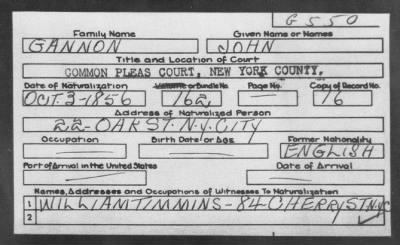 G 550
Family Name Given Name or Names
GANNON JOHN
Title and Location of Court
COMMON PLEAS COURT, NEW YORK COUNTY.
Date of Naturalization Volume or Bundle No. Page No. Copy of Record No.
OCT. 3-1856 162 — 16
Address of Naturalized Person
22-OAK ST. N.Y. CITY
Occupation Birth Date or Age Former Nationality
— — ENGLISH
Port of Arrival in the United States Date of Arrival
— —
Names, Addresses and Occupations of Witnesses To Naturalization
1 WILLIAM TIMMINS-84 CHERRY ST N.Y.C
2